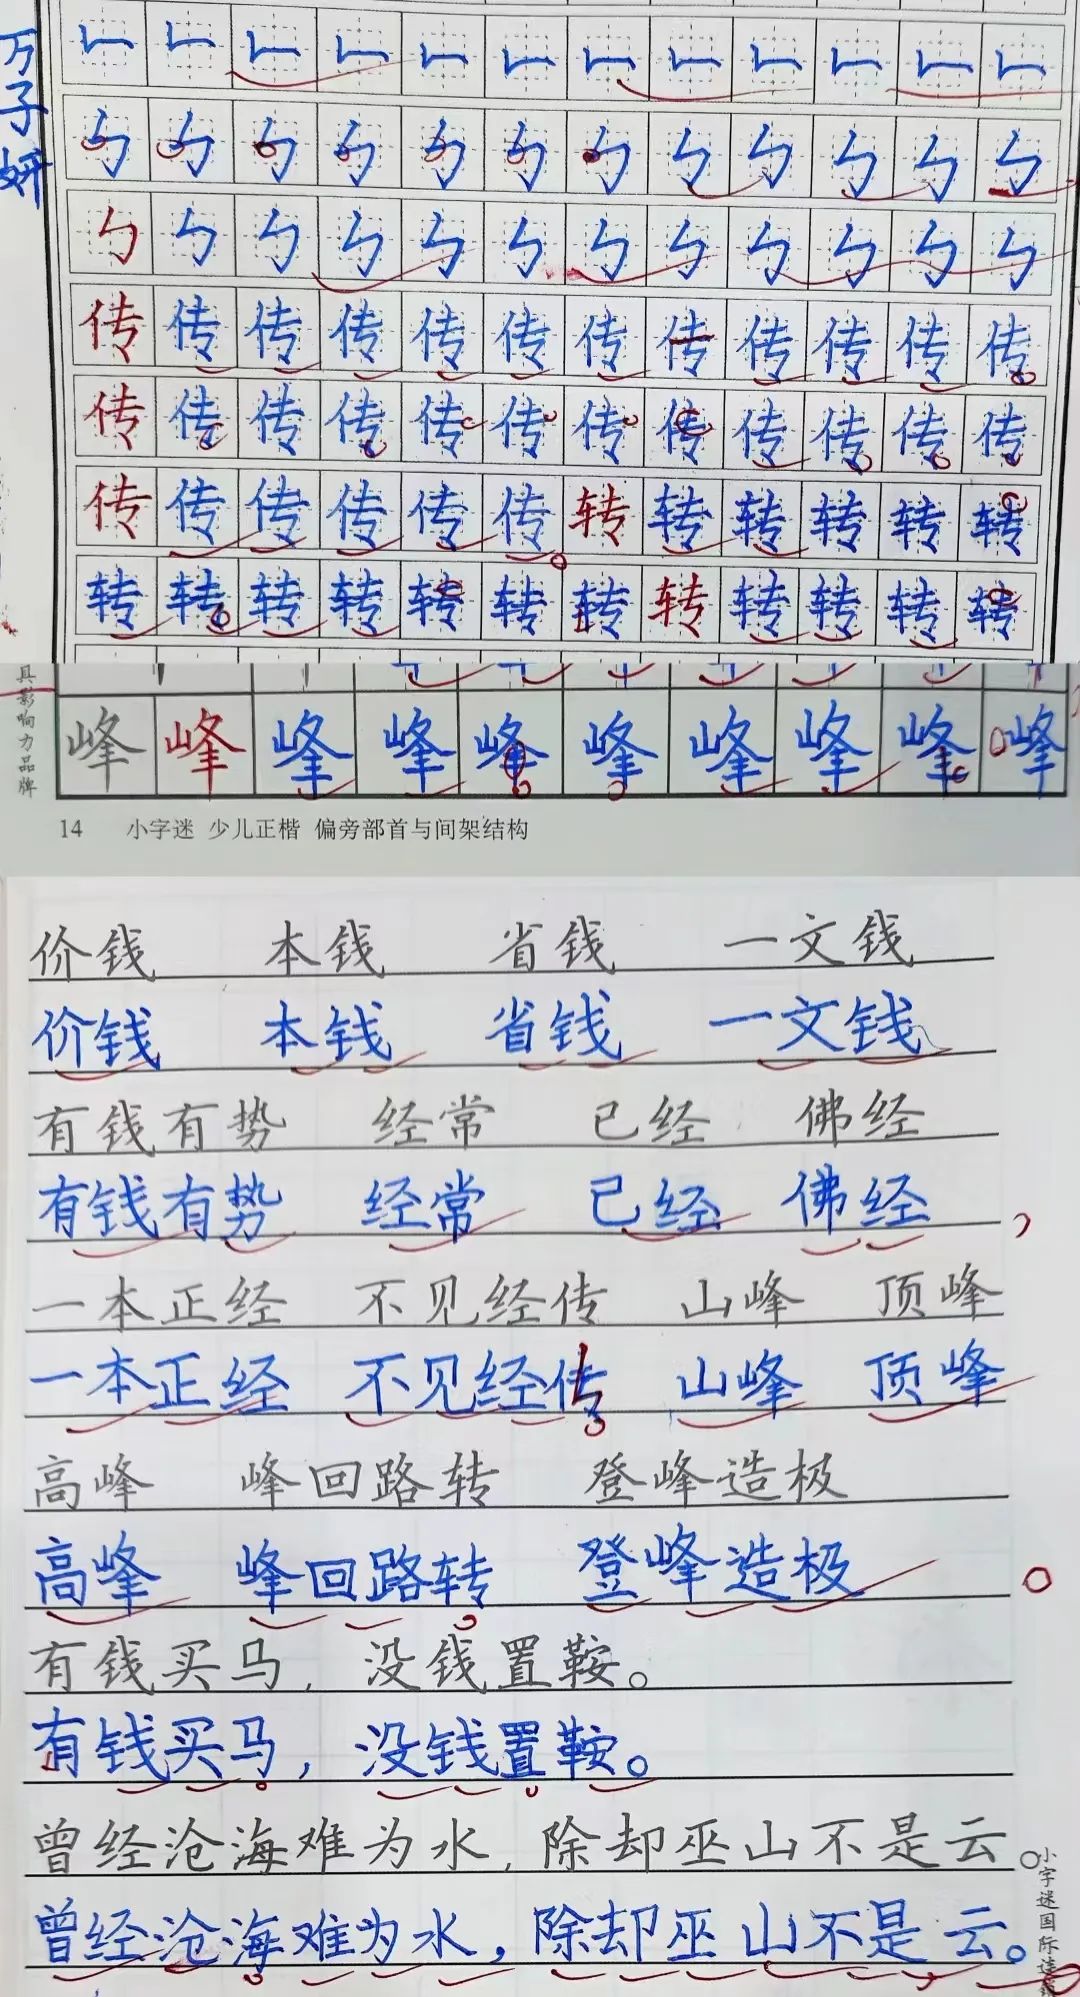 万子妍
传传传传传传传传传传传传
传传传传传传传传传传传传
传传传传传传转转转转转转
转转转转转转转转转转转转
具影响力品牌
峰峰峰峰峰峰峰峰峰峰
14 小字迷 少儿正楷 偏旁部首与间架结构
价钱 本钱 省钱 一文钱
价钱 本钱 省钱 一文钱
有钱有势 经常 已经 佛经
有钱有势 经常 已经 佛经
一本正经 不见经传 山峰 顶峰
一本正经 不见经传 山峰 顶峰
高峰 峰回路转 登峰造极
高峰 峰回路转 登峰造极
有钱买马,没钱置鞍。
有钱买马,没钱置鞍。
曾经沧海难为水,除却巫山不是云。
曾经沧海难为水,除却巫山不是云。
小字迷国际连锁